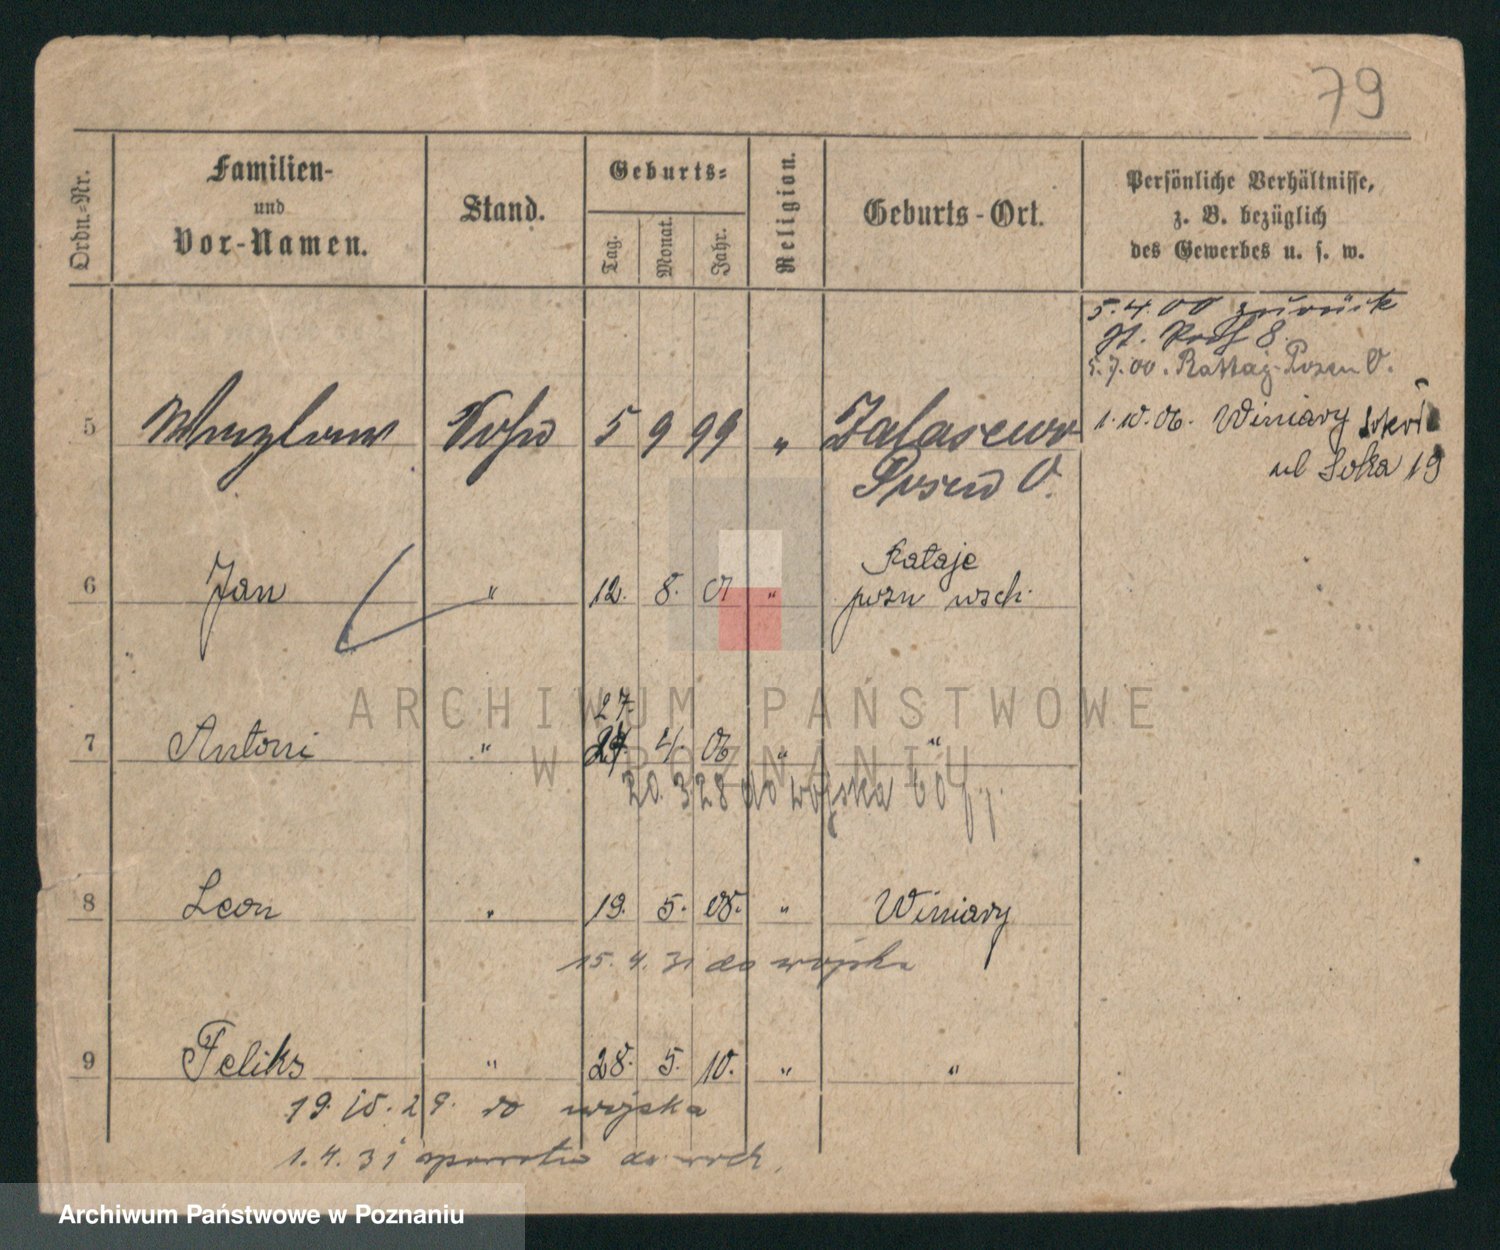 79
Ordn.-Nr.
Familien-
und
Vor-Namen.
Stand.
Geburts-
Tag.
Monat.
Jahr.
Religion.
Geburts-Ort.
Persönliche Verhältnisse,
z. B. bezüglich
des Gewerbes u. s. w.
5.4.00 zurück
8
5.7.00. Rattaj-Posen O.
5 5 9 99 " Zalasewo 1.10.06. Winiary
Posen O. ul 19
Rataje
6 Jan " 12. 8. 01 " pozn wsch.
27.
7 Antoni " 27. 4. 06 " "
20. 3 28 do wojska
8 Leon " 19. 5. 08. " Winiary
15. 4. 31 do wojska
9 Feliks " 28. 5. 10. " "
19. 10. 29. do wojska
1. 4. 31
ARCHIWUM PAŃSTWOWE
W POZNANIU
Archiwum Państwowe w Poznaniu